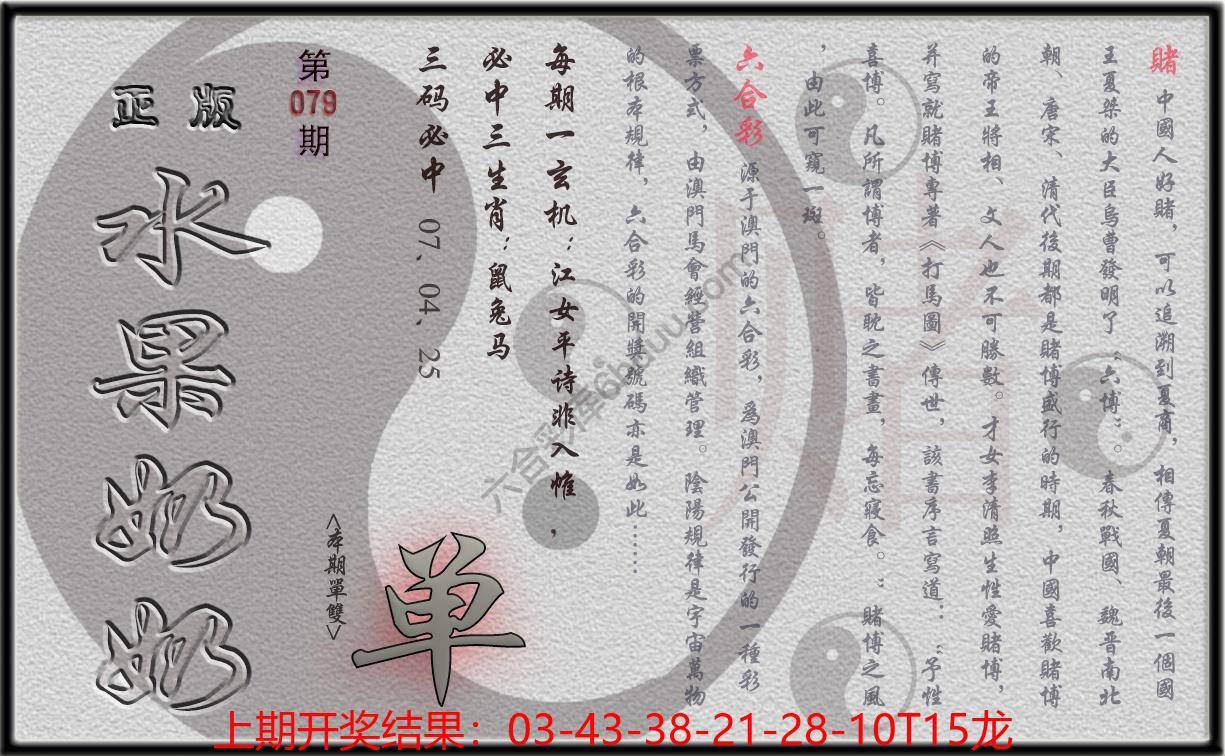 賭 中國人好賭，可以追溯到夏商，相傳夏朝最後一個國
王夏桀的大臣烏曹發明了“六博”。春秋戰國、魏晋南北
朝、唐宋、清代後期都是賭博盛行的時期，中國喜歡賭博
的帝王將相、文人也不可勝數。才女李清照生性愛賭博，
并寫就賭博專著《打馬圖》傳世，該書序言寫道：“予性
喜博。凡所謂博者，皆耽之晝畫，每忘寢食。”賭博之風
，由此可窺一斑。
六合彩 源于澳門的六合彩，爲澳門公開發行的一種彩
票方式，由澳門馬會經營組織管理。陰陽規律是宇宙萬物
的根本規律，六合彩的開獎號碼亦是如此……
每期一玄机：江女平诗非入帷，
必中三生肖：鼠兔马
三码必中 07. 04. 25
第
079
期
<本期單雙>
单
正版
水果奶奶
賭
六合彩库6huuu.com
上期开奖结果：03-43-38-21-28-10T15龙